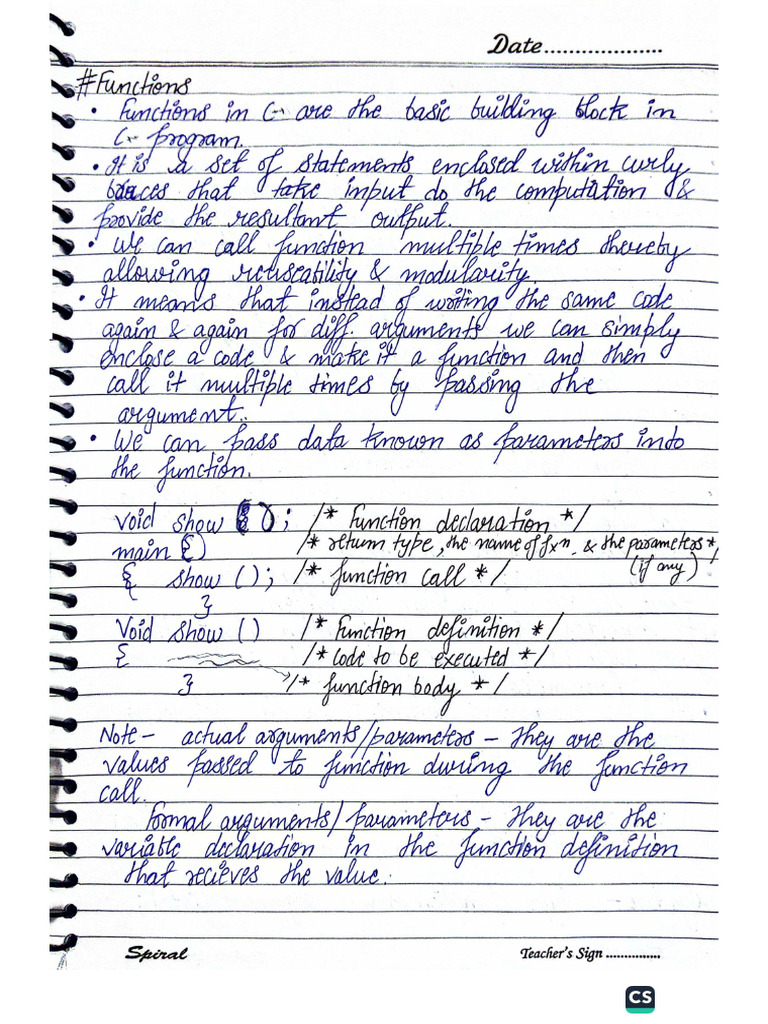 Date...................
#Functions
• Functions in C are the basic building block in
C program.
• It is a set of statements enclosed within curly
braces that take input do the computation &
provide the resultant output.
• We can call function multiple times thereby
allowing reuseability & modularity.
• It means that instead of writing the same code
again & again for diff. arguments we can simply
enclose a code & make it a function and then
call it multiple times by passing the
argument.
• We can pass data known as parameters into
the function.
void show (); /* Function declaration */
main () /* return type, the name of fxn. & the parameters */
(if any)
{ show (); /* function call */
}
Void show () /* Function definition */
{ /* code to be executed */
} /* function body */
Note - actual arguments/parameters - they are the
values passed to function during the function
call.
formal arguments/parameters - they are the
variable declaration in the function definition
that recieves the value.
Spiral Teacher's Sign ...............
CS